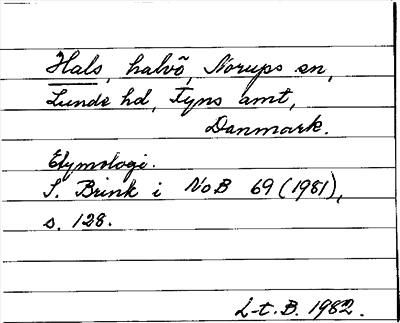 Hals, halvö, Norups sn,
Lunde hd, Fyns amt,
Danmark.
Etymologi.
S. Brink i NoB 69 (1981),
s. 128.
L-t. B. 1982.